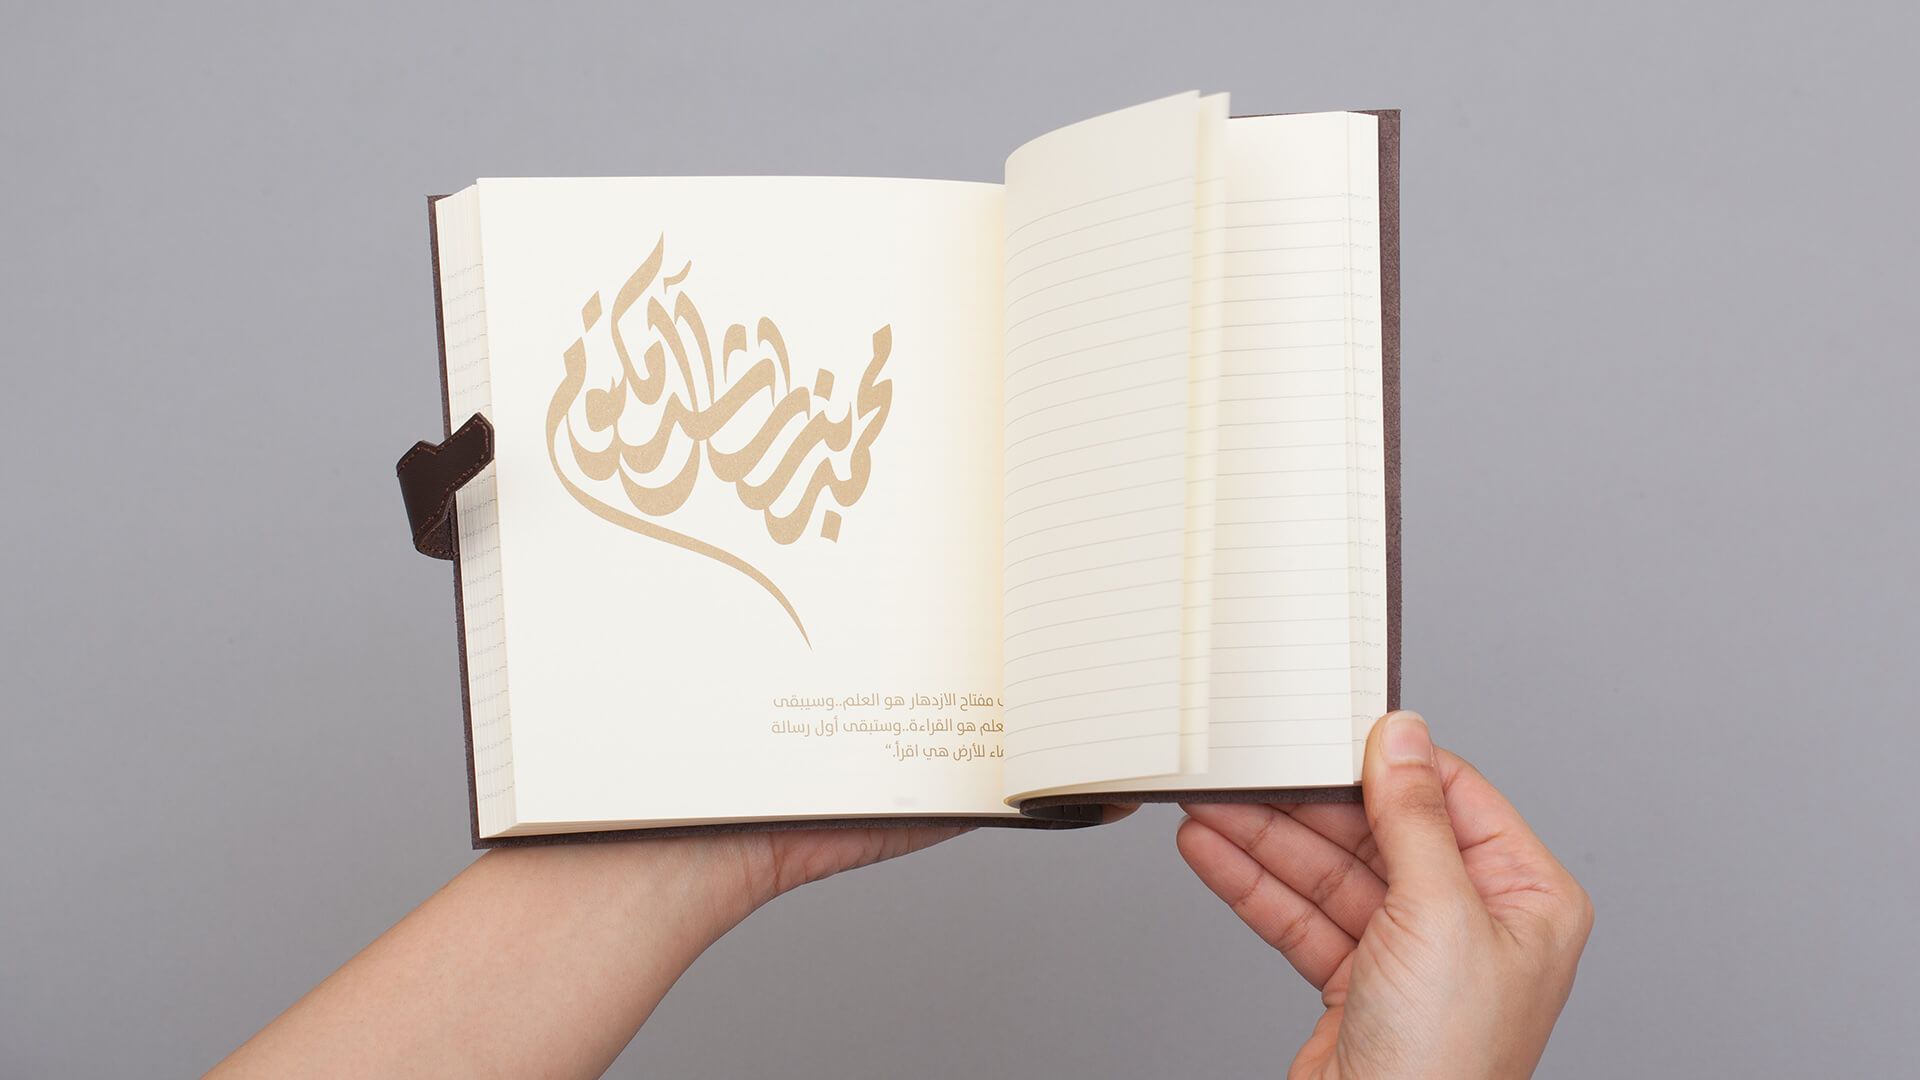 محمد بن راشد آل مكتوم
مفتاح الازدهار هو العلم..وسيبقى
هو القراءة..وستبقى أول رسالة
للأرض هي اقرأ.“